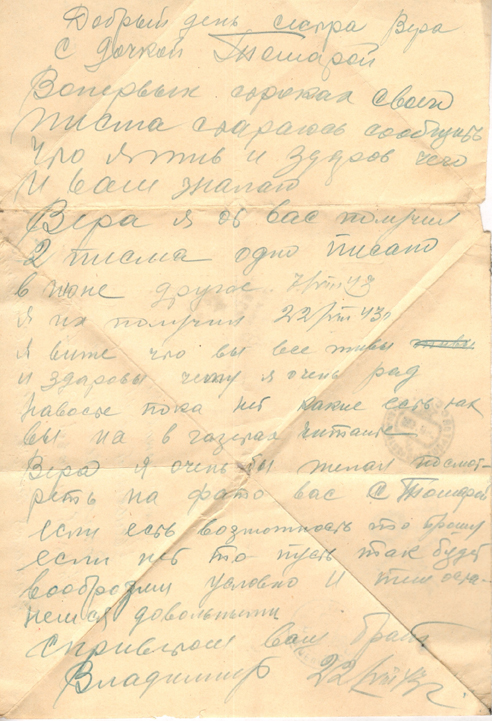 Добрый день сестра Вера
с дочкой Тамарой
Вопервых строках своего
писма стараюсь сообщить
что я жив и здоров чего
и вам желаю
Вера я от вас получил
2 писма одно писано
в июне другое 7/VIII 43
я их получил 22/VIII 43г
я вижу что вы все живы
и здоровы чему я очень рад
навостей пока нет какие есть как
вы их в газетах читаете
Вера я очень бы желал посмот-
реть на фото вас с Тамарой
если есть возможность то прошу
если нет то пусть так будет
вооброзим условно и тем оста-
немся довольными
с приветом ваш брат
Владимир 22/VIII 43г